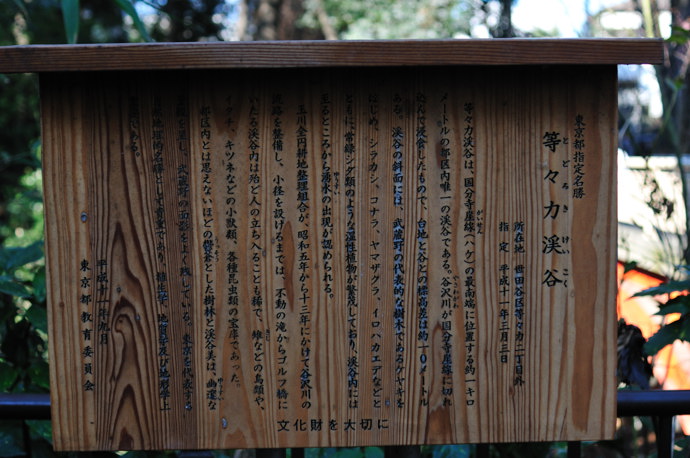 東京都指定名勝
等々力渓谷
とどろきけいこく
所在地 世田谷区等々力一丁目外
指定 平成十一年三月三日
等々力渓谷は、国分寺崖線(ハケ)の最南端に位置する約一キロ
がいせん
メートルの都区内唯一の渓谷である。谷沢川が国分寺崖線に切れ
やざわがわ
込んで浸食したもので、台地と谷との標高差は約一〇メートル
ある。渓谷の斜面には、武蔵野の代表的な樹木であるケヤキを
はじめ、シラカシ、コナラ、ヤマザクラ、イロハカエデなどと
ともに、常緑シダ類のような湿性植物が繁茂しており、渓谷内には
至るところから湧水の出現が認められる。
ゆうすい
玉川全円耕地整理組合が、昭和五年から十三年にかけて谷沢川の
流路を整備し、小径を設けるまでは、不動の滝からゴルフ橋に
いたる渓谷内は殆ど人の立ち入ることも稀で、雉などの鳥類や、
イタチ、キツネなどの小獣類、各種昆虫類の宝庫であった。
都区内とは思えないほどの鬱蒼とした樹林と渓谷美は、幽邃な
うっそう
ゆうすい
を呈し、武蔵野の面影をよく残している。東京を代表する
地域的名勝として貴重であり、植生学、地質学及び地形学上
である。
平成十一年九月
東京都教育委員会
文化財を大切に